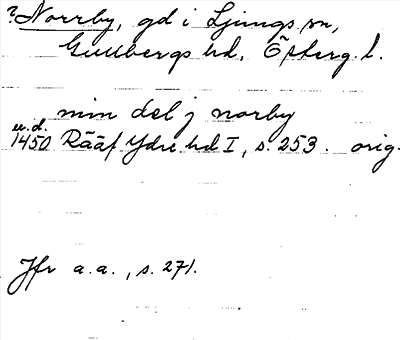 ?Norrby, gd i Ljungs sn,
Gullbergs hd, Österg. l.
min del j norby
u.d.
1450 Rääf Ydre hd I, s. 253. orig.
Jfr a.a., s. 271.